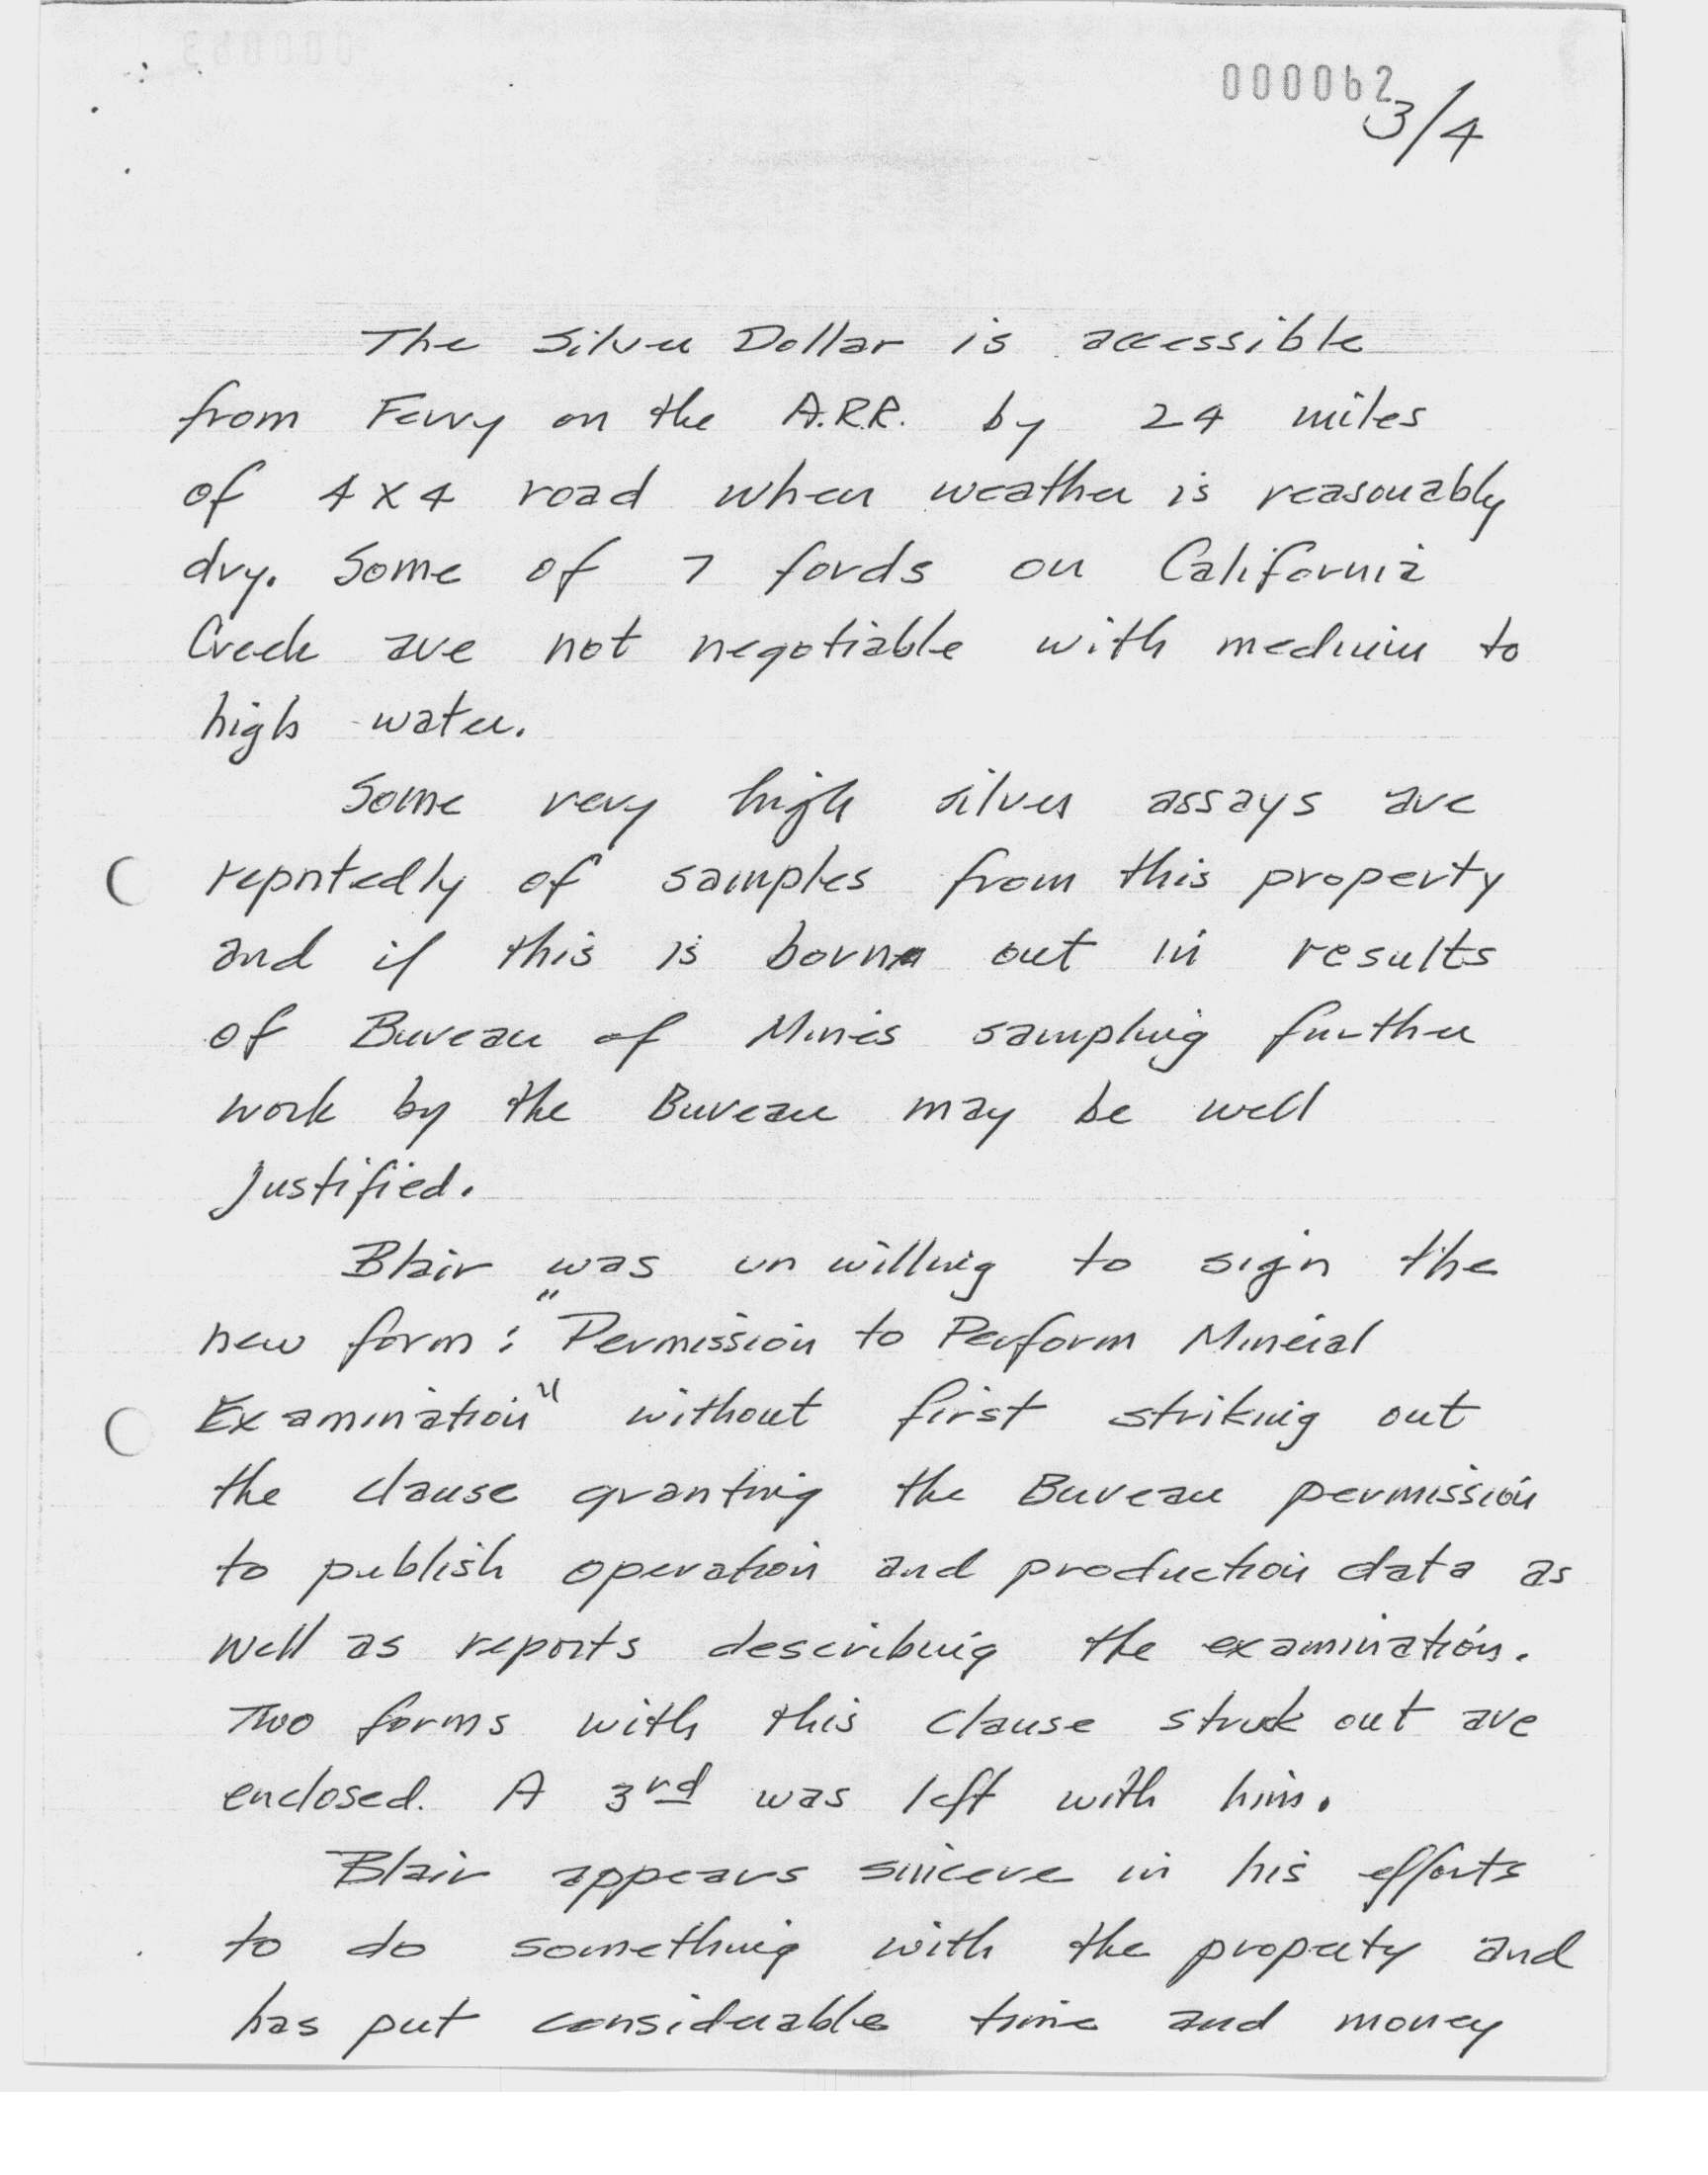 000062
3/4
The Silver Dollar is accessible
from Ferry on the A.R.R. by 24 miles
of 4x4 road when weather is reasonably
dry. Some of 7 fords on California
Creek are not negotiable with medium to
high water.
Some very high silver assays are
reportedly of samples from this property
and if this is borne out in results
of Bureau of Mines sampling further
work by the Bureau may be well
justified.
Blair was unwilling to sign the
new form: "Permission to Perform Mineral
Examination" without first striking out
the clause granting the Bureau permission
to publish operation and production data as
well as reports describing the examination.
Two forms with this clause struck out are
enclosed. A 3rd was left with him.
Blair appears sincere in his efforts
to do something with the property and
has put considerable time and money